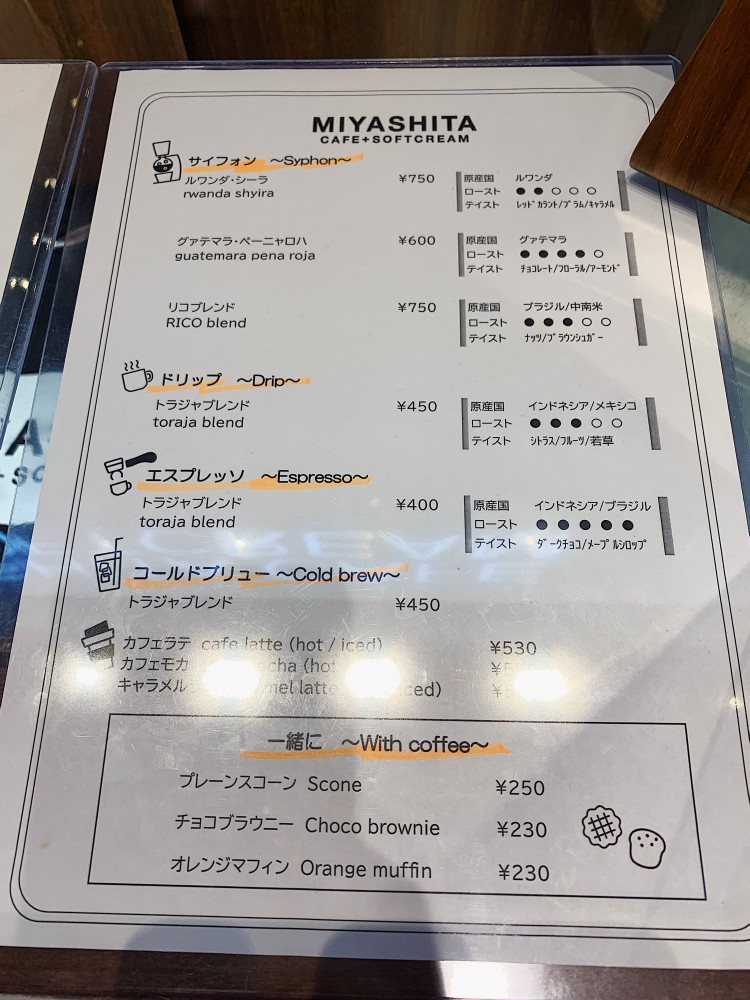 MIYASHITA
CAFE+SOFTCREAM
サイフォン ～Syphon～
ルワンダ・シーラ ¥750
rwanda shyira
原産国 ルワンダ
ロースト ●●○○○
テイスト ﾚｯﾄﾞｶﾗﾝﾄ/ﾌﾟﾗﾑ/ｷｬﾗﾒﾙ
グァテマラ・ペーニャロハ ¥600
guatemara pena roja
原産国 グァテマラ
ロースト ●●●●○
テイスト ﾁｮｺﾚｰﾄ/ﾌﾛｰﾗﾙ/ｱｰﾓﾝﾄﾞ
リコブレンド ¥750
RICO blend
原産国 ブラジル/中南米
ロースト ●●●○○
テイスト ﾅｯﾂ/ﾌﾞﾗｳﾝｼｭｶﾞｰ
ドリップ ～Drip～
トラジャブレンド ¥450
toraja blend
原産国 インドネシア/メキシコ
ロースト ●●●○○
テイスト ｼﾄﾗｽ/ﾌﾙｰﾂ/若草
エスプレッソ ～Espresso～
トラジャブレンド ¥400
toraja blend
原産国 インドネシア/ブラジル
ロースト ●●●●●
テイスト ﾀﾞｰｸﾁｮｺ/ﾒｰﾌﾟﾙｼﾛｯﾌﾟ
コールドブリュー ～Cold brew～
トラジャブレンド ¥450
カフェラテ cafe latte (hot / iced) ¥530
カフェモカ
キャラメル latte
一緒に ～With coffee～
プレーンスコーン Scone ¥250
チョコブラウニー Choco brownie ¥230
オレンジマフィン Orange muffin ¥230